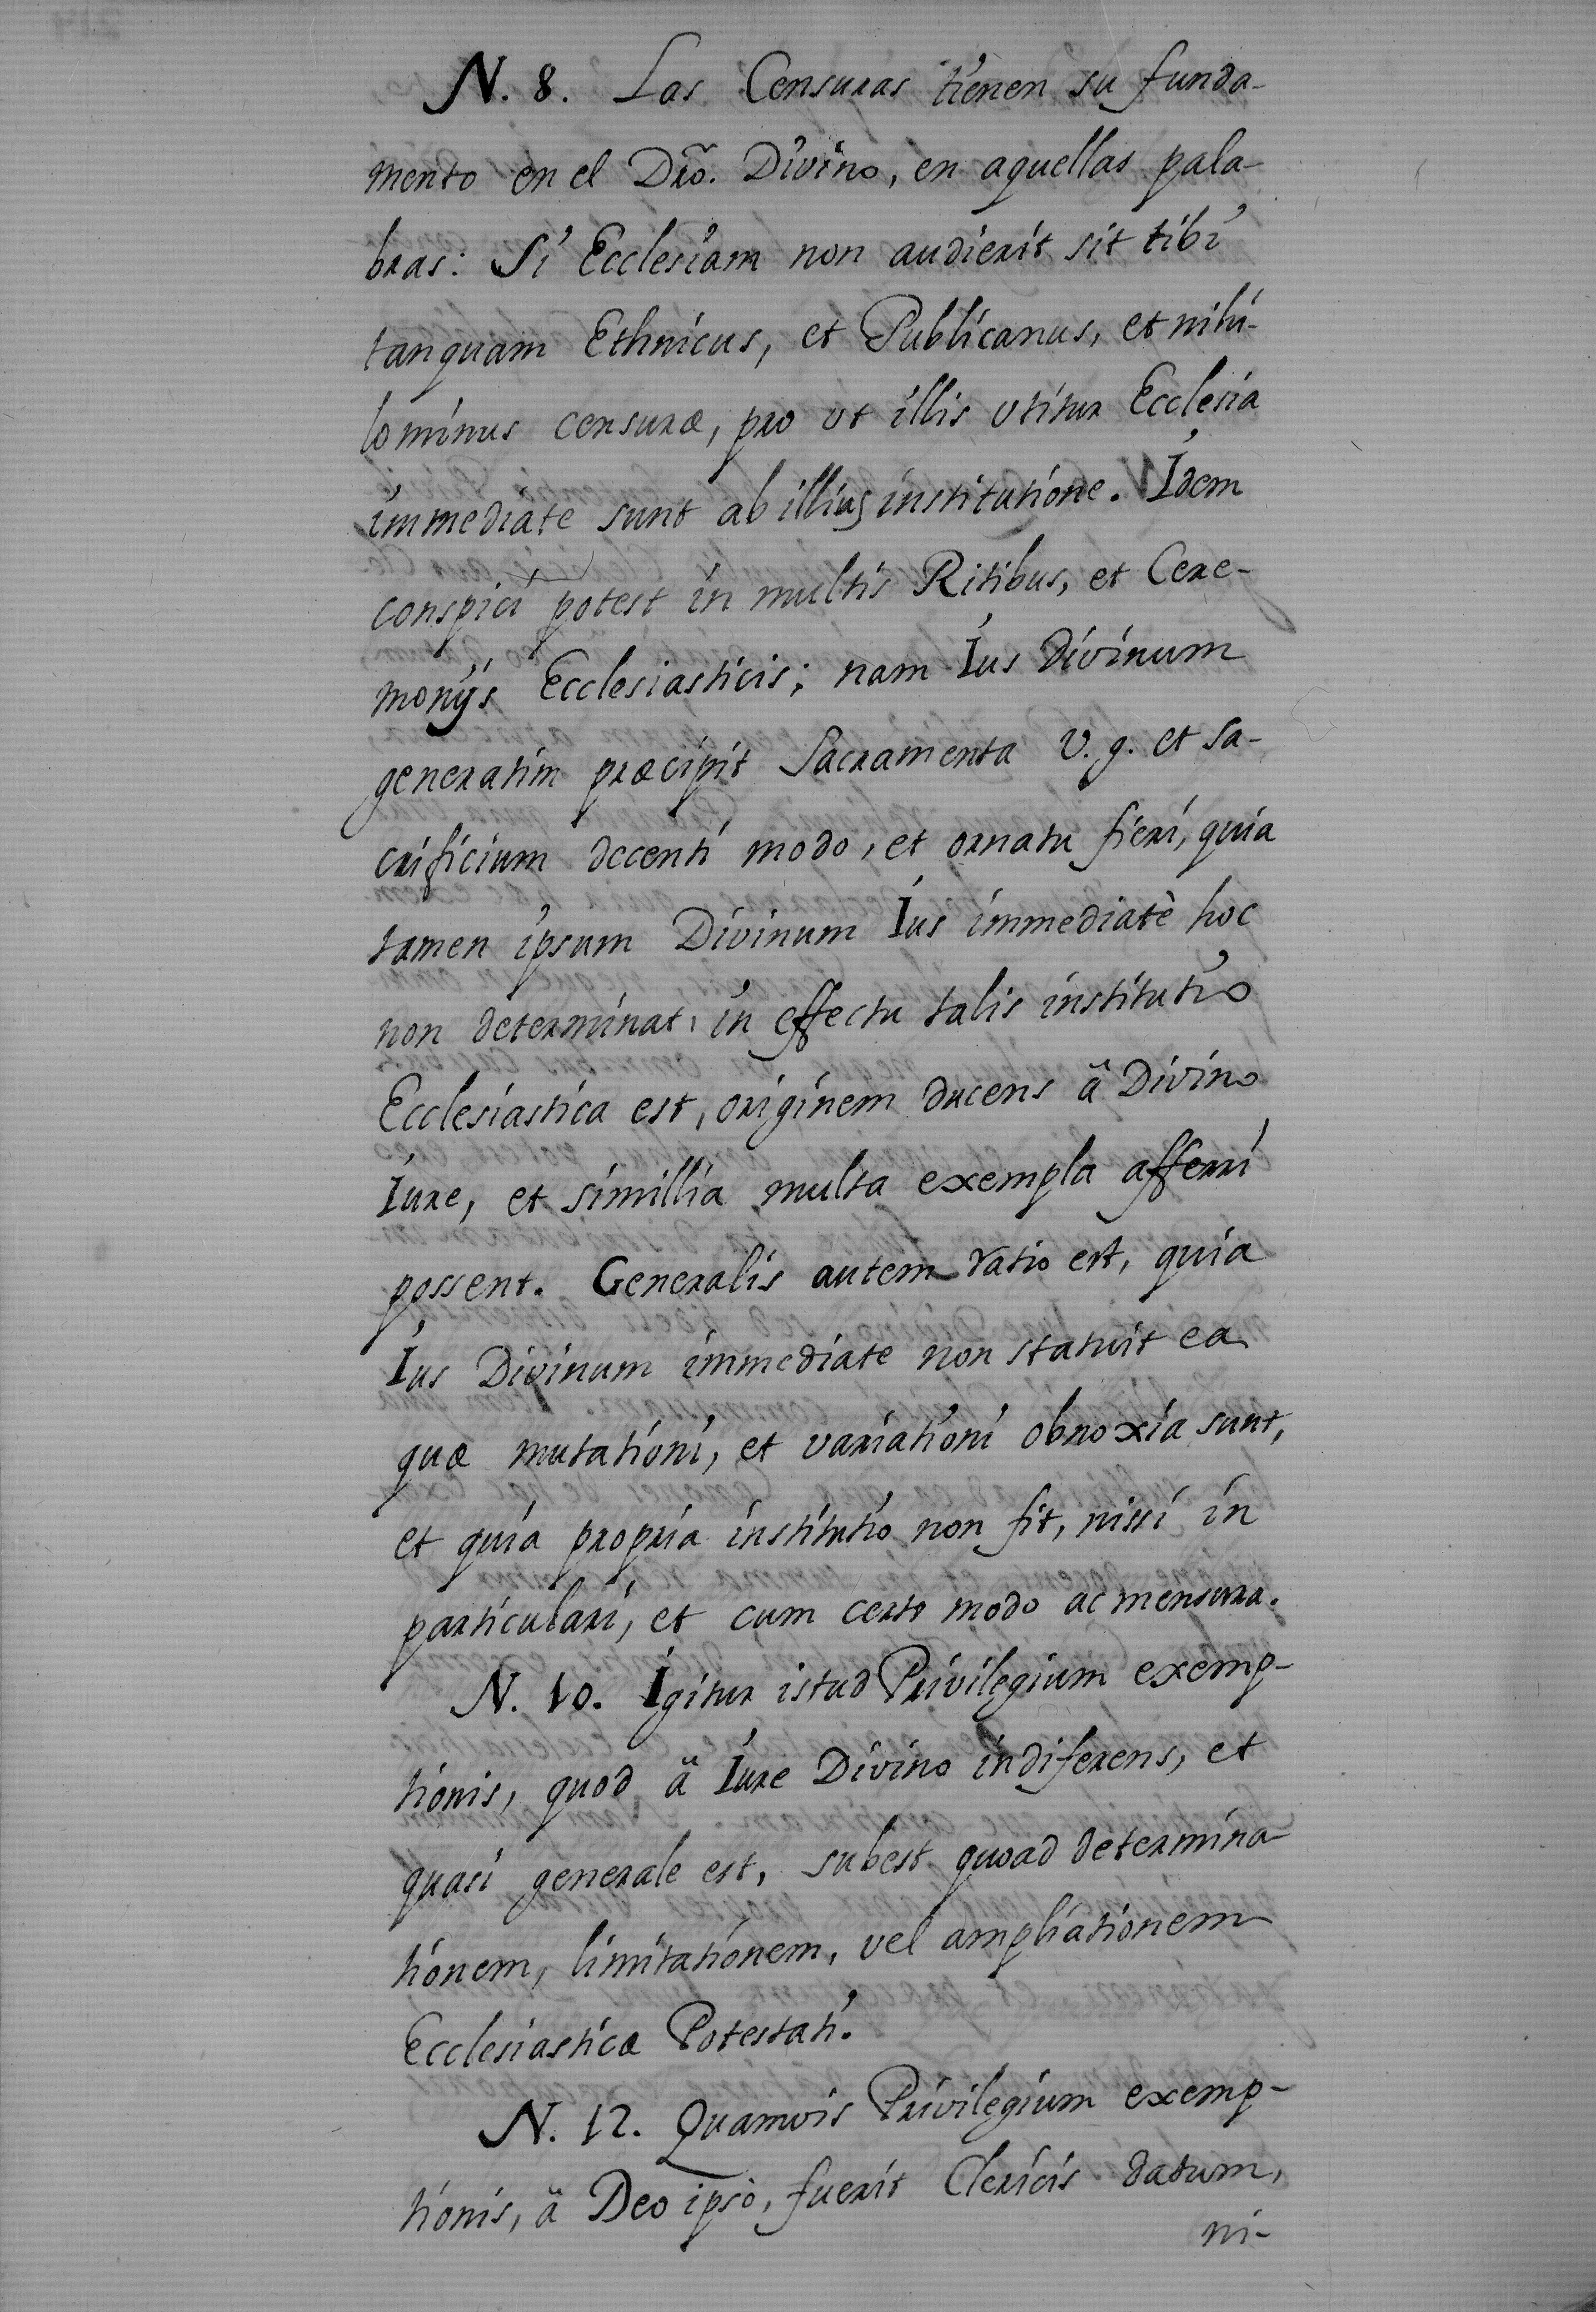 N. 8. Las Censuras tienen su funda-
mento en el Dr̃o. Divino, en aquellas pala-
bras: Si Ecclesiam non audierit sit tibi
tanquam Ethnicus, et Publicanus, et nihi-
lominus censuræ, pro ut illis utitur Ecclesia
immediate sunt ab illius institutione. Idem
conspici potest in multis Ritibus, et Cere-
monijs Ecclesiasticis; nam Ius divinum
generatim præcipit Sacramenta v.g. et sa-
crificium decenti modo, et ornatu fieri, quia
tamen ipsum Divinum Ius immediatè hoc
non determinat, in effectu talis institutio
Ecclesiastica est, originem ducens â Divino
Iure, et simillia multa exempla afferri
possent. Generalis autem ratio est, quia
Ius Divinum immediate non statuit ea
quæ mutationi, et variationi obnoxia sunt,
et quia propria institutio non fit, nissi in
particulari, et cum certo modo ac mensura.
N. 10. Igitur istud Privilegium exemp-
tionis, quod â Iure Divino indiferens, et
quasi generale est, subest quoad determina-
tionem, limitationem, vel ampliationem
Ecclesiasticæ Potestati.
N. 12. Quamvis Privilegium exemp-
tionis, â Deo ipso, fuerit Clericis datum,
ni-